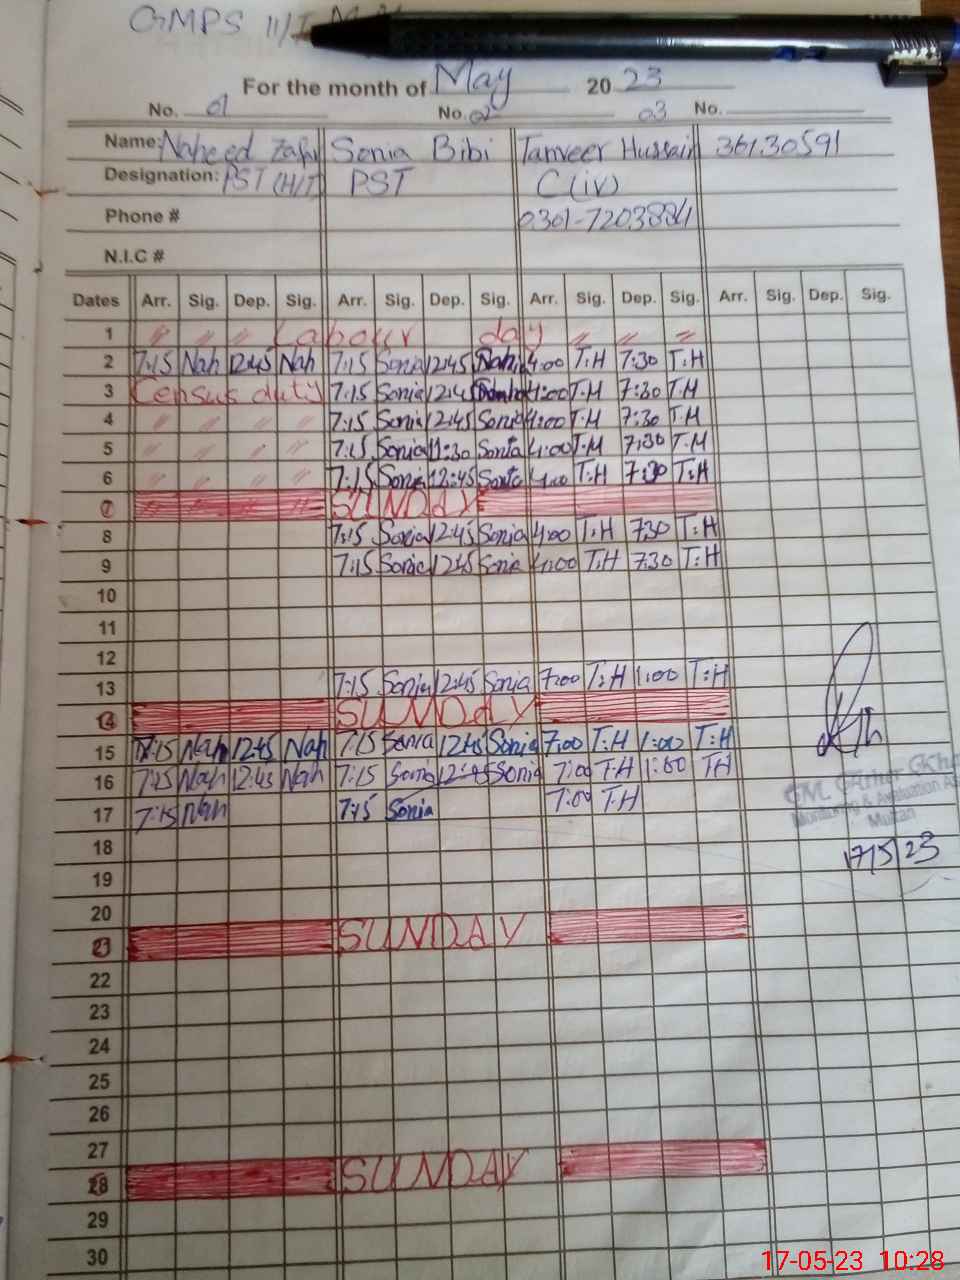 GMPS 11/
For the month of May 2023
No. 01 No. 02 03 No.
Name: Naheed Zafar Sonia Bibi Tanveer Hussain 36130591
Designation: PST (H/T) PST C(iv)
Phone # 0301-7203884
N.I.C #
Dates Arr. Sig. Dep. Sig. Arr. Sig. Dep. Sig. Arr. Sig. Dep. Sig. Arr. Sig. Dep. Sig.
1 〃 〃 〃 Labour day 〃 〃 〃
2 7:15 Nah 12:45 Nah 7:15 Sonia 12:45 4:00 T:H 7:30 T:H
3 Census duty 7:15 Sonia 12:45 4:00 T:H 7:30 T:H
4 〃 〃 〃 〃 7:15 Sonia 12:45 Sonia 4:00 T:H 7:30 T:H
5 〃 〃 〃 〃 7:15 Sonia 11:30 Sonia 4:00 T:H 7:30 T:H
6 〃 〃 〃 〃 7:15 Sonia 12:45 Sonia 4:00 T:H 7:30 T:H
7 〃 〃 〃 〃 SUNDAY
8 7:15 Sonia 12:45 Sonia 4:00 T:H 7:30 T:H
9 7:15 Sonia 12:45 Sonia 4:00 T:H 7:30 T:H
10
11
12
13 7:15 Sonia 12:45 Sonia 7:00 T:H 1:00 T:H
14 SUNDAY
15 7:15 Nah 12:45 Nah 7:15 Sonia 12:45 Sonia 7:00 T:H 1:00 T:H
16 7:15 Nah 12:45 Nah 7:15 Sonia 12:45 Sonia 7:00 T:H 1:00 TH
17 7:15 Nah 7:15 Sonia 7:00 T:H
Monitoring & Evaluation
Multan
18 17/5/23
19
20
21 SUNDAY
22
23
24
25
26
27
28 SUNDAY
29
30
17-05-23 10:28